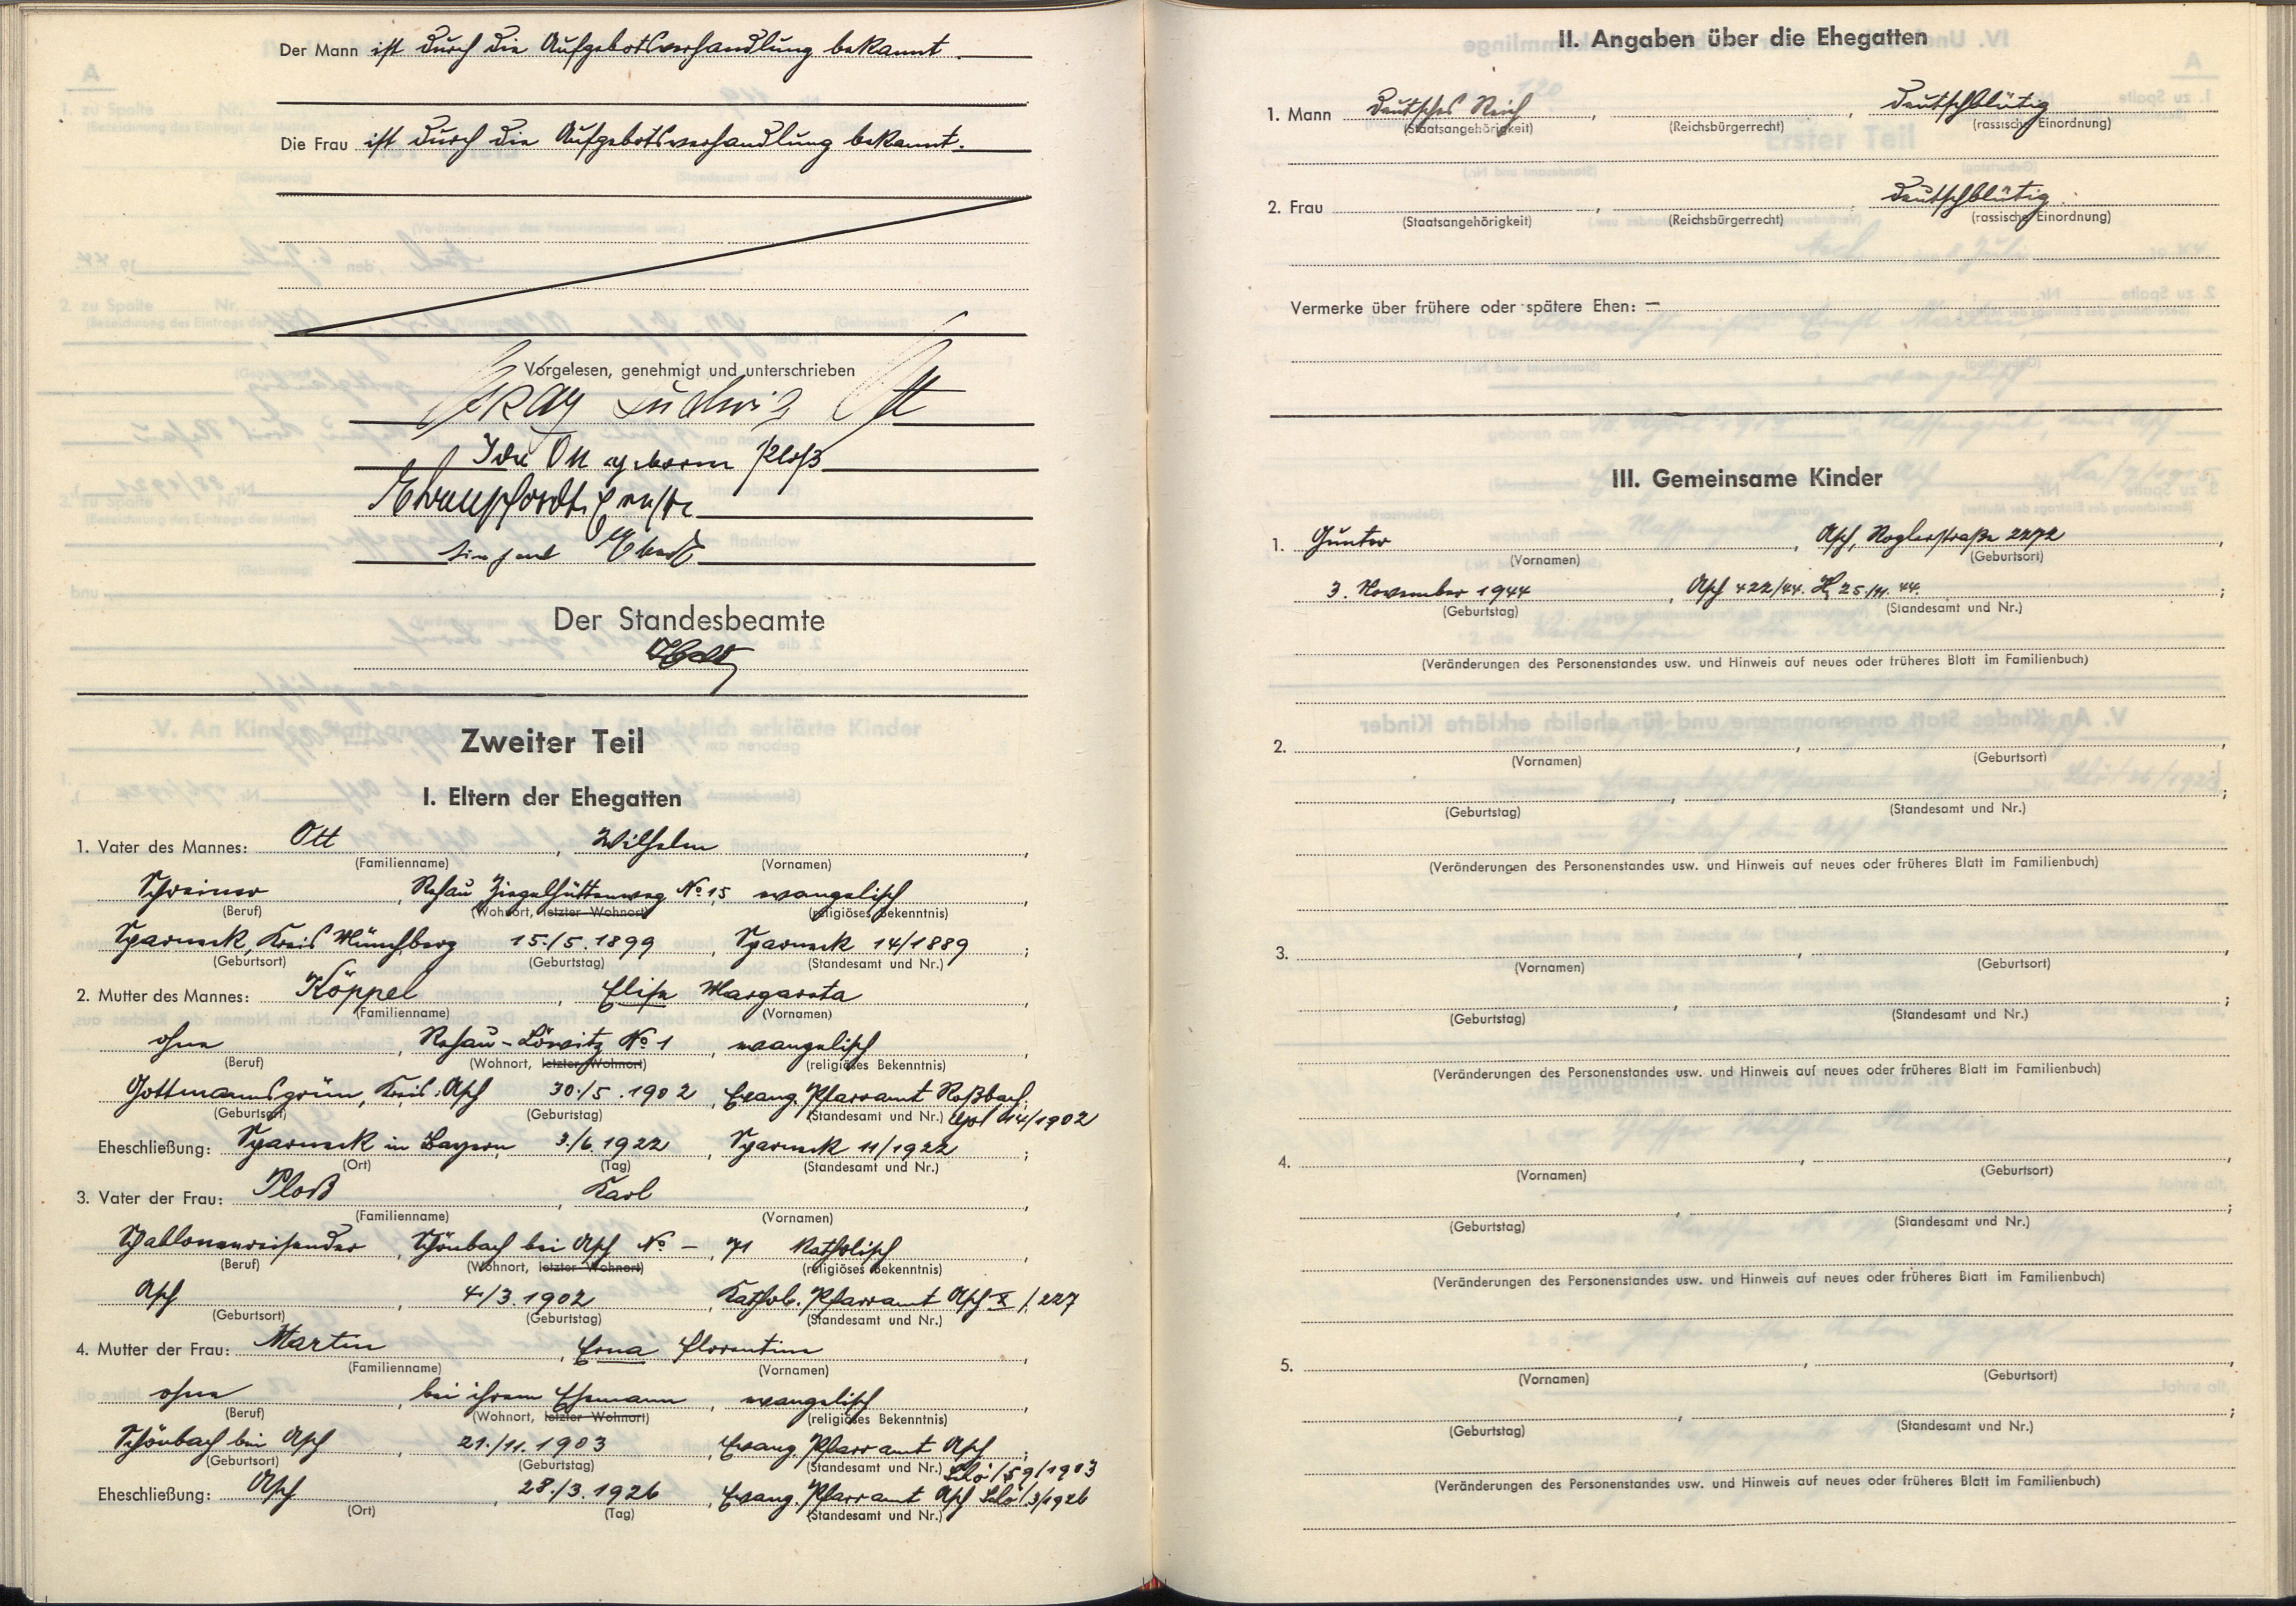 Der Mann ist durch die Aufgebotsverhandlung bekannt.
Die Frau ist durch die Aufgebotsverhandlung bekannt.
Vorgelesen, genehmigt und unterschrieben
Ludwig Ott
Ida Ott geborene Ploß
Der Standesbeamte
Zweiter Teil
I. Eltern der Ehegatten
1. Vater des Mannes: Ott, Wilhelm,
(Familienname) (Vornamen)
Schreiner, Rehau Ziegelhüttenweg No 15, evangelisch,
(Beruf) (Wohnort, letzter Wohnort) (religiöses Bekenntnis)
Sparneck, Kreis Münchberg 15./5.1899, Sparneck 14/1889;
(Geburtsort) (Geburtstag) (Standesamt und Nr.)
2. Mutter des Mannes: Köppel, Elise Margareta,
(Familienname) (Vornamen)
ohne, Rehau-Löwitz No 1, evangelisch,
(Beruf) (Wohnort, letzter Wohnort) (religiöses Bekenntnis)
Gottmannsgrün, Kreis Asch 30./5.1902, Evang. Pfarramt Roßbach;
(Geburtsort) (Geburtstag) (Standesamt und Nr.) 14/1902
Eheschließung: Sparneck in Bayern 3./6.1922, Sparneck 11/1922;
(Ort) (Tag) (Standesamt und Nr.)
3. Vater der Frau: Ploß, Karl,
(Familienname) (Vornamen)
Schablonenreisender, Schönbach bei Asch No –, 71 katholisch,
(Beruf) (Wohnort, letzter Wohnort) (religiöses Bekenntnis)
Asch, 4./3.1902, Kathol. Pfarramt Asch X/227
(Geburtsort) (Geburtstag) (Standesamt und Nr.)
4. Mutter der Frau: Martin, Erna Florentine,
(Familienname) (Vornamen)
ohne, bei ihrem Ehemann, evangelisch,
(Beruf) (Wohnort, letzter Wohnort) (religiöses Bekenntnis)
Schönbach bei Asch, 21./11.1903, Evang. Pfarramt Asch;
(Geburtsort) (Geburtstag) (Standesamt und Nr.) Schö/59/1903
Eheschließung: Asch, 28./3.1926, Evang. Pfarramt Asch Schö/3/1926
(Ort) (Tag) (Standesamt und Nr.)
II. Angaben über die Ehegatten
1. Mann Deutsches Reich, , deutschblütig
(Staatsangehörigkeit) (Reichsbürgerrecht) (rassische Einordnung)
2. Frau , , deutschblütig.
(Staatsangehörigkeit) (Reichsbürgerrecht) (rassische Einordnung)
Vermerke über frühere oder spätere Ehen: –
III. Gemeinsame Kinder
1. Günter, Asch, Roglerstraße 2272,
(Vornamen) (Geburtsort)
3. November 1944, Asch 422/44. 25./11.44.;
(Geburtstag) (Standesamt und Nr.)
(Veränderungen des Personenstandes usw. und Hinweis auf neues oder früheres Blatt im Familienbuch)
2. , ,
(Vornamen) (Geburtsort)
, ;
(Geburtstag) (Standesamt und Nr.)
(Veränderungen des Personenstandes usw. und Hinweis auf neues oder früheres Blatt im Familienbuch)
3. , ,
(Vornamen) (Geburtsort)
, ;
(Geburtstag) (Standesamt und Nr.)
(Veränderungen des Personenstandes usw. und Hinweis auf neues oder früheres Blatt im Familienbuch)
4. , ,
(Vornamen) (Geburtsort)
, ;
(Geburtstag) (Standesamt und Nr.)
(Veränderungen des Personenstandes usw. und Hinweis auf neues oder früheres Blatt im Familienbuch)
5. , ,
(Vornamen) (Geburtsort)
, ;
(Geburtstag) (Standesamt und Nr.)
(Veränderungen des Personenstandes usw. und Hinweis auf neues oder früheres Blatt im Familienbuch)